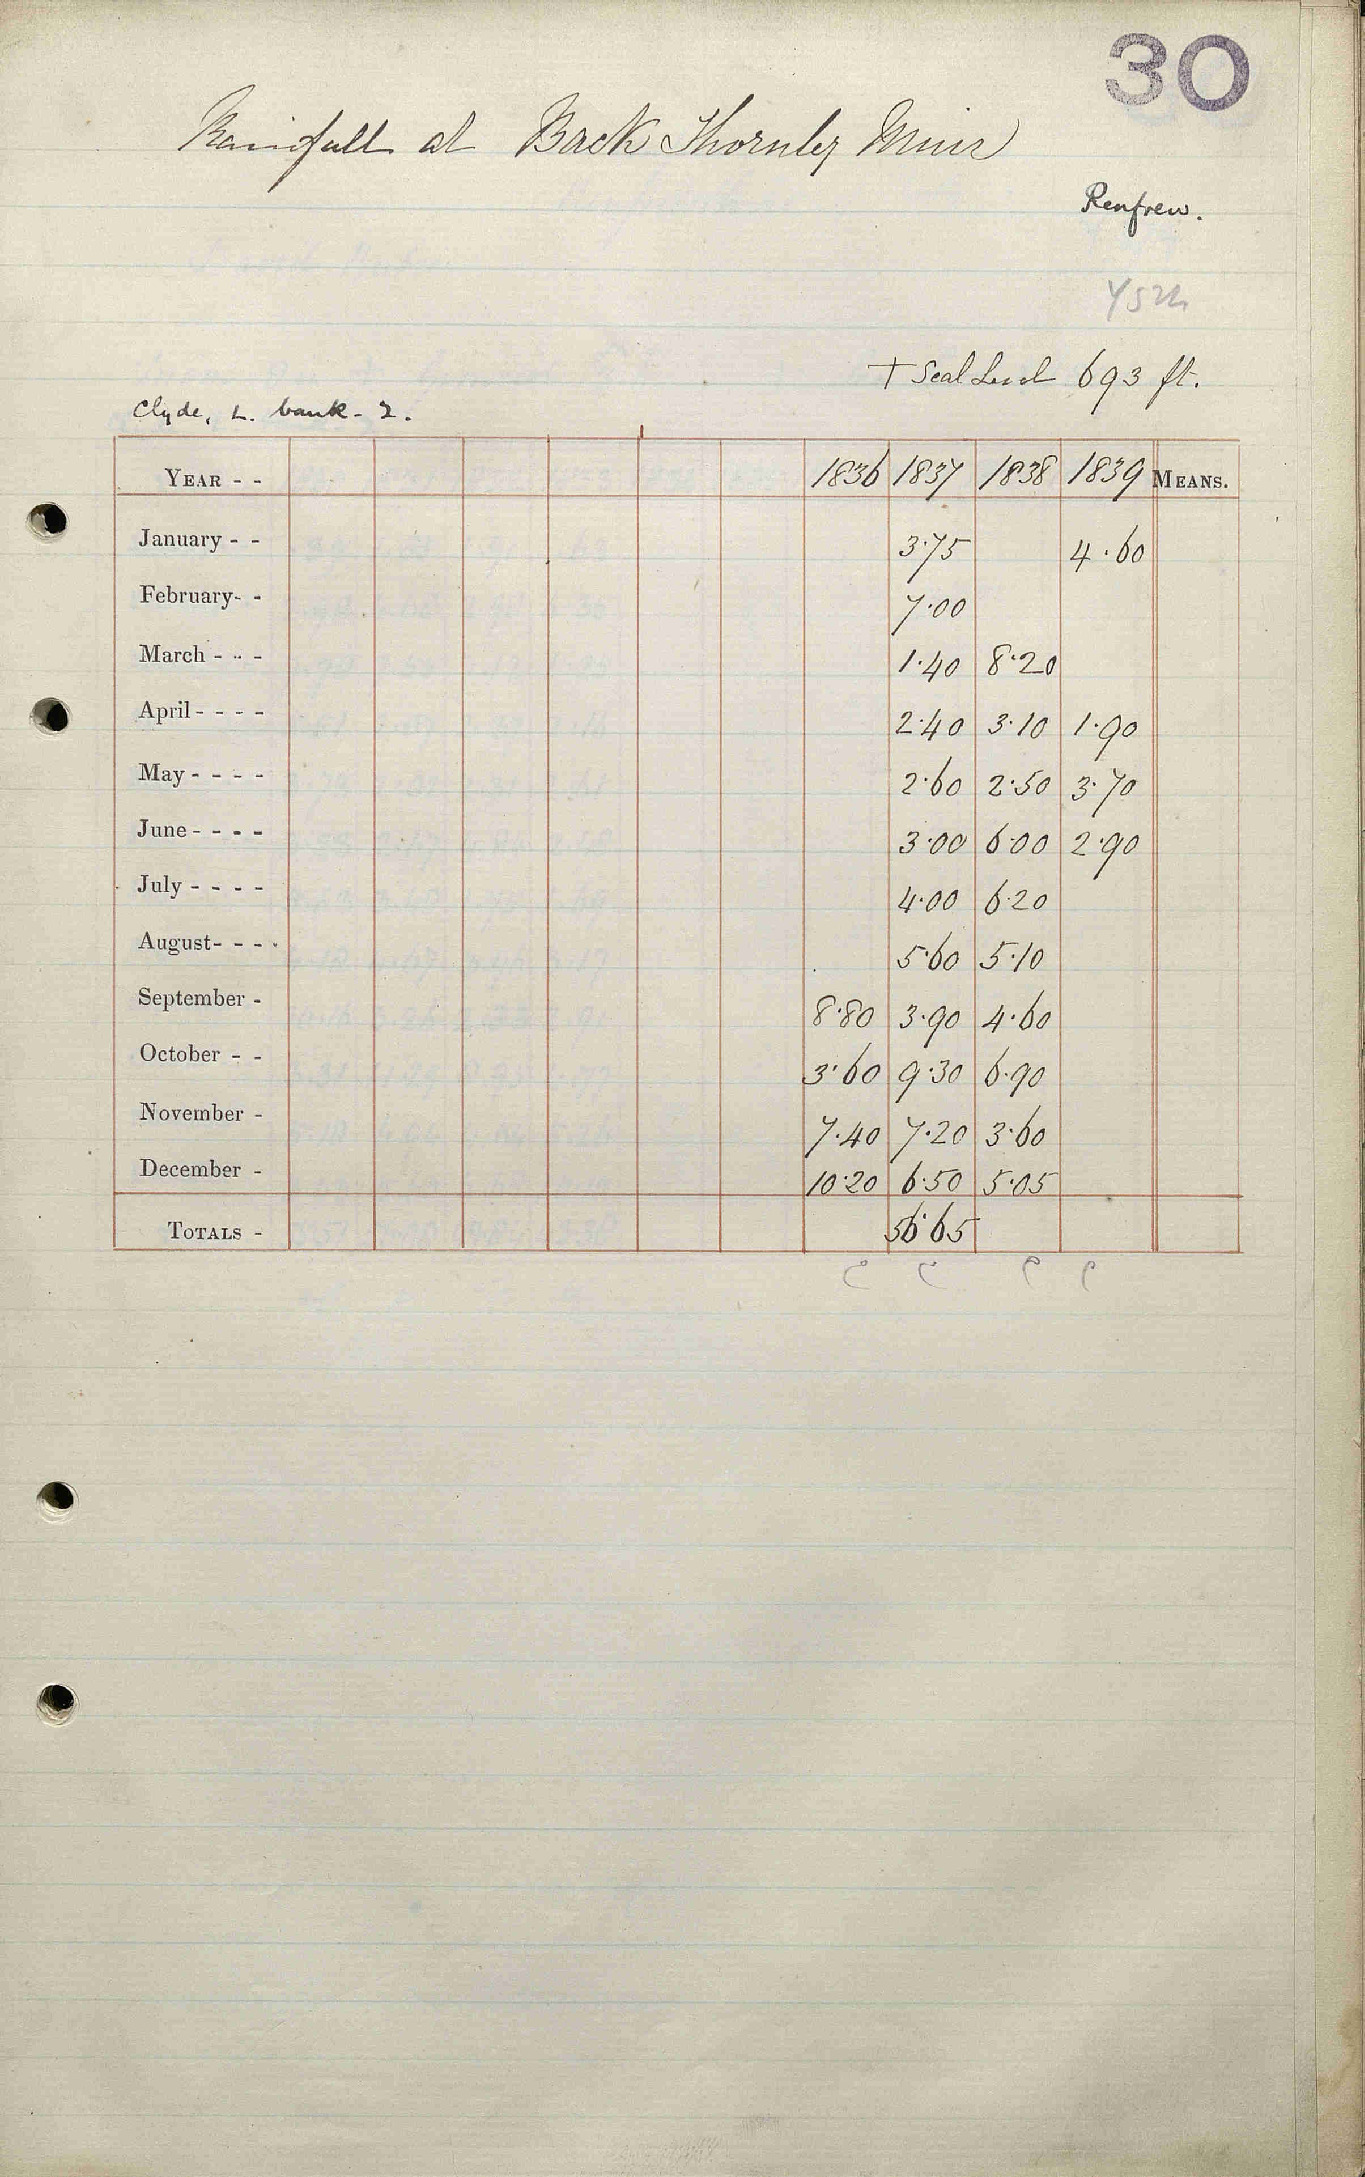 30
Rainfall at Back Thornley Muir
Renfrew.
+ Seal Level 693 ft.
Clyde, L. bank - 2.
YEAR - - 1836 1837 1838 1839 MEANS.
January - - 3·75 4·60
February- - 7·00
March - - - 1·40 8·20
April - - - - 2·40 3·10 1·90
May - - - - 2·60 2·50 3·70
June - - - - 3·00 6·00 2·90
July - - - - 4·00 6·20
August- - - - 5·60 5·10
September - 8·80 3·90 4·60
October - - 3·60 9·30 6·90
November - 7·40 7·20 3·60
December - 10·20 6·50 5·05
TOTALS - 56·65